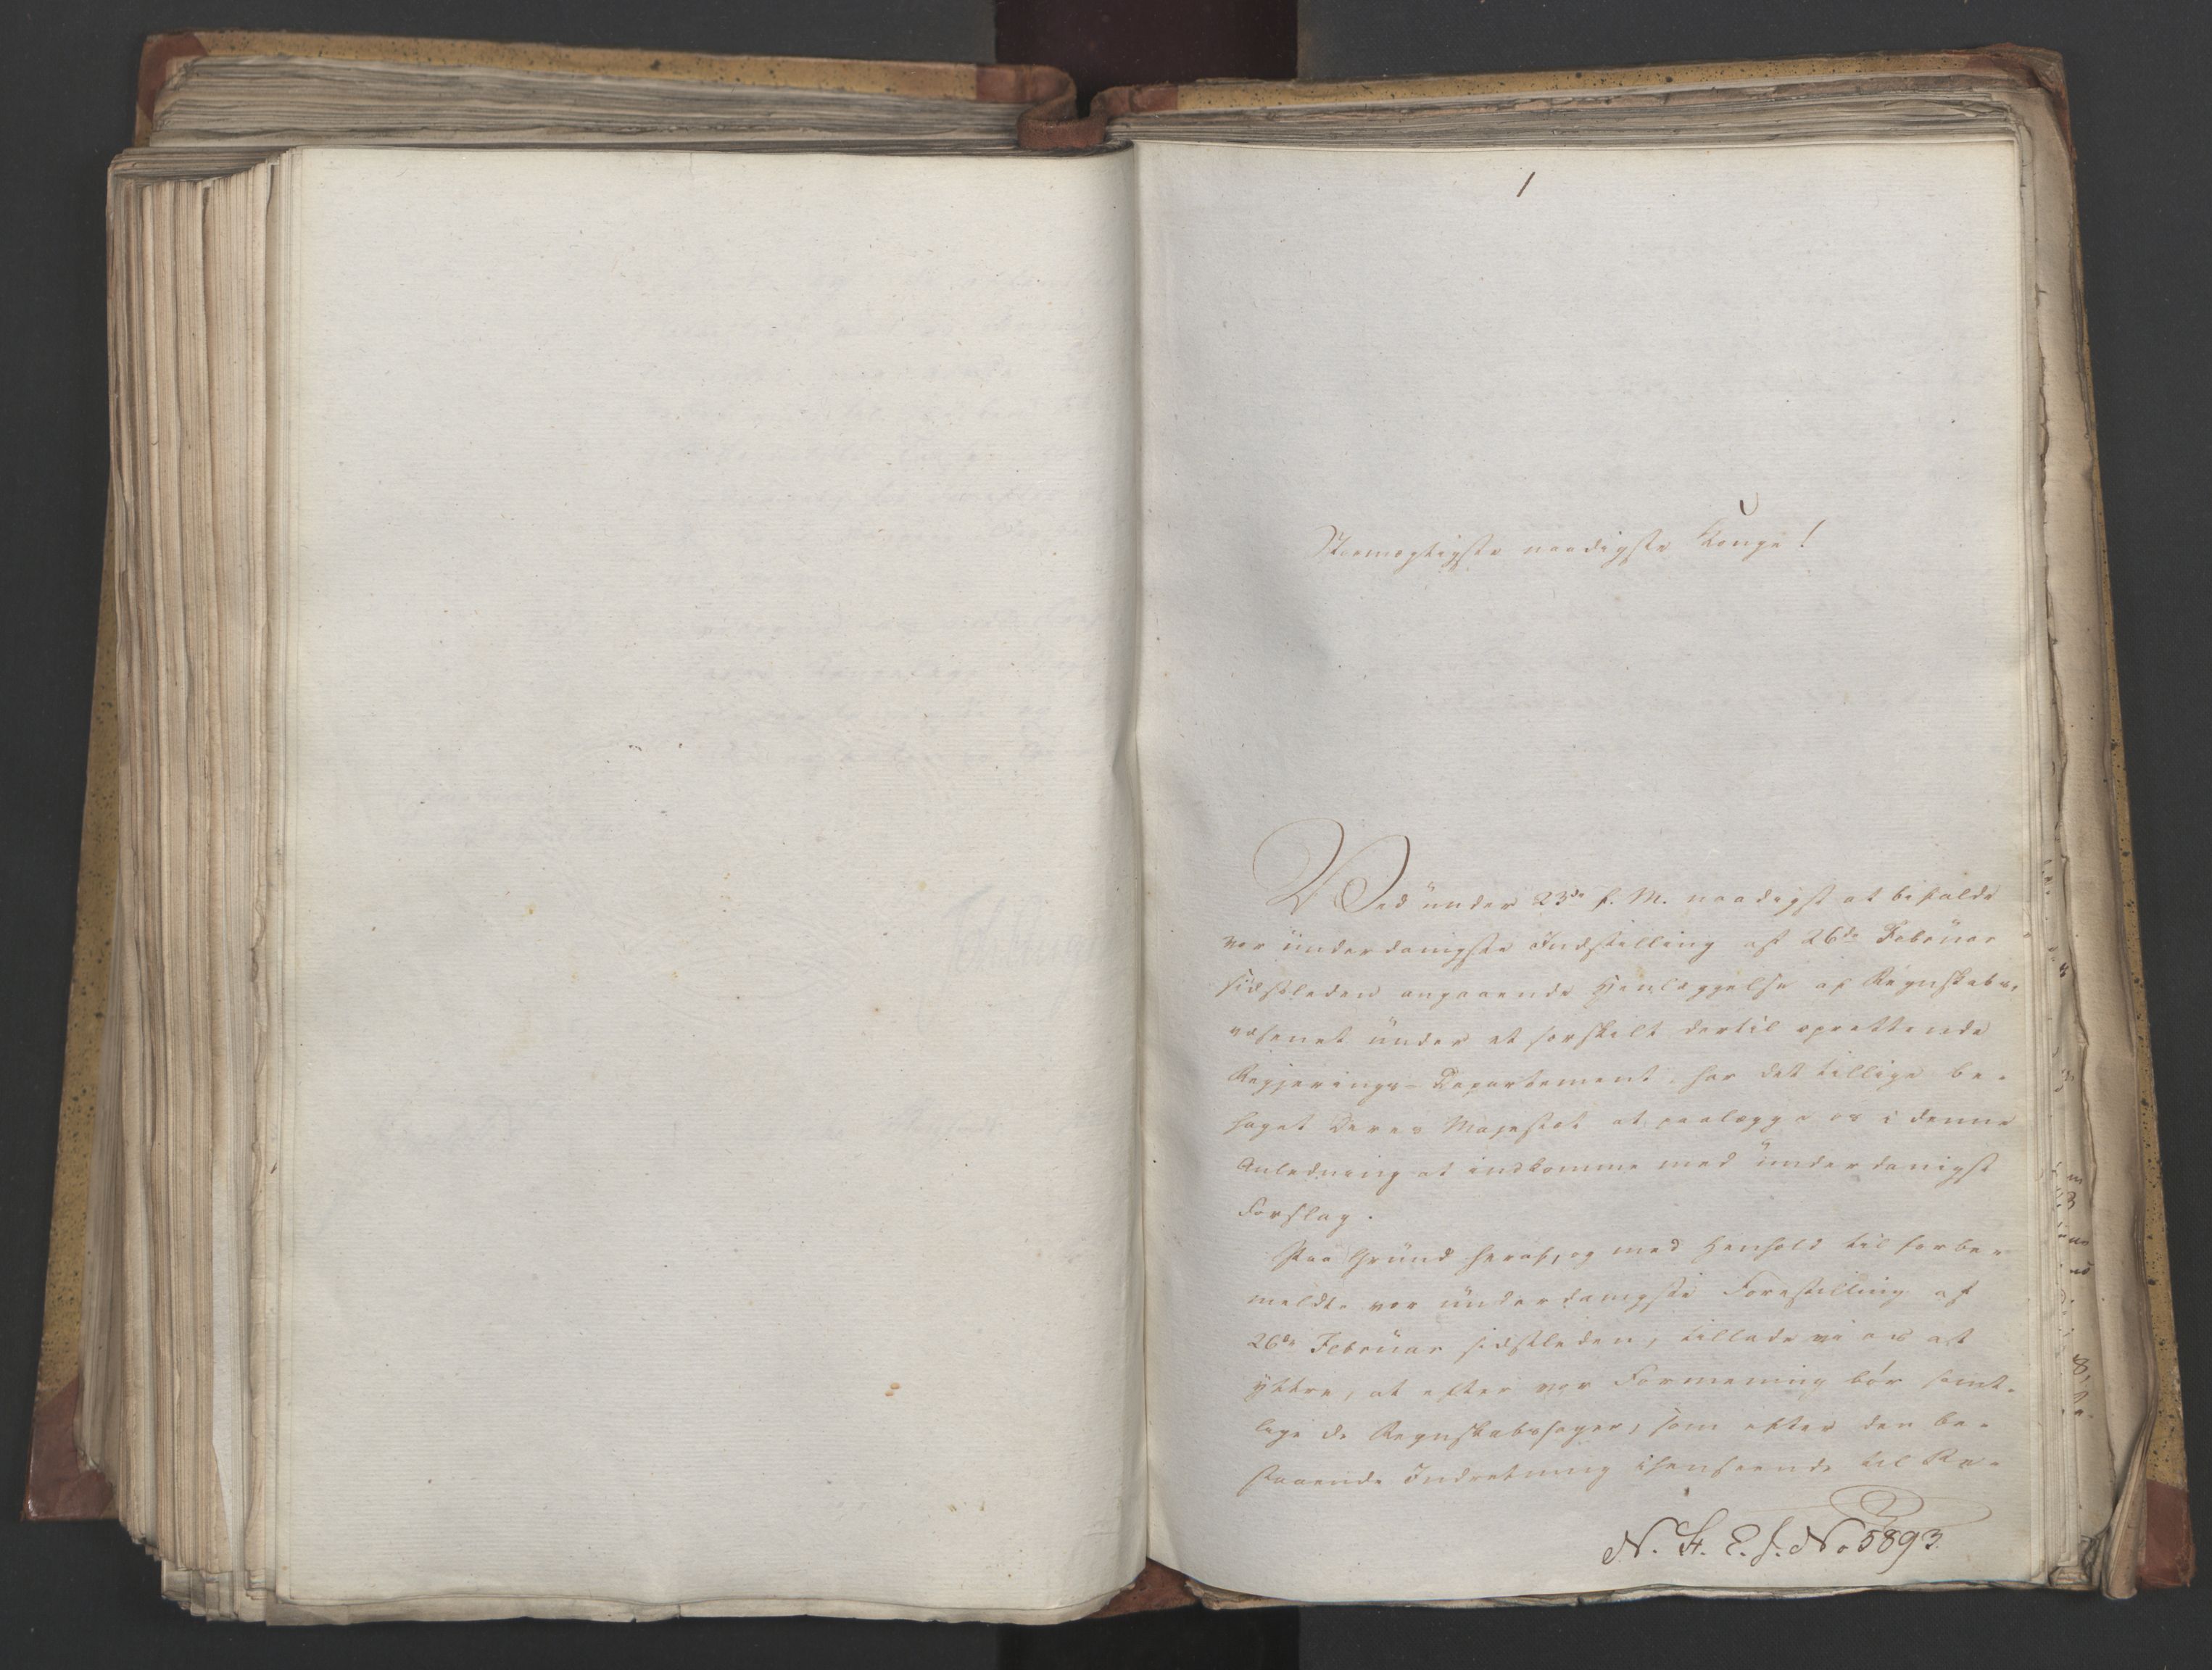 1
Stormægtigste naadigste Konge!
Ved under 23de f. M. naadigst at bifalde
vor underdanigste Indstilling af 26de Februar
sidstleden angaaende Henlæggelse af Regnskabs-
væsenet under et særskilt dertil oprettende
Regjerings-Departement, har det tillige be-
haget Deres Majestæt at paalægge os i denne
Anledning at indkomme med underdanigst
Forslag.
Paa Grund heraf, og med Henhold til forbe-
meldte vor underdanigste Forestilling af
26de Februar sidstleden, tillade vi os at
yttre, at efter vor Formening bør samt-
lige de Regnskabssager, som efter den be-
staaende Indretning ihenseende til Re-
N. H. E. J. No 5893.